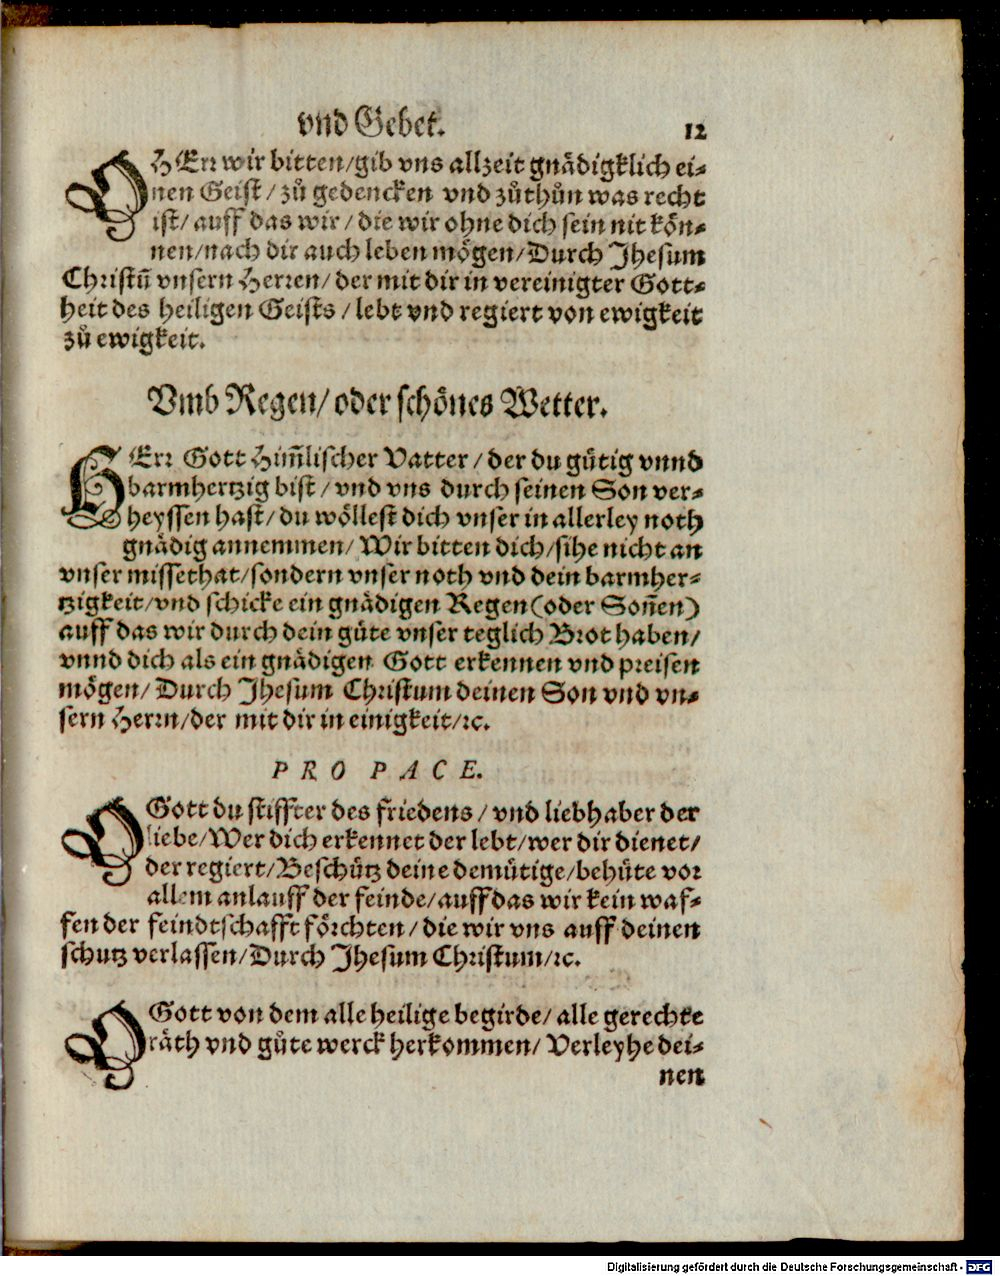 vnd Gebet. 12
O HErr wir bitten/gib vns allzeit gnädigklich ei⸗
nen Geist/ zů gedencken vnd zůthůn was recht
ist/ auff das wir/ die wir ohne dich sein nit kön⸗
nen/nach dir auch leben mögen/Durch Jhesum
Christū vnsern Herren/ der mit dir in vereinigter Gott⸗
heit des heiligen Geists / lebt vnd regiert von ewigkeit
zů ewigkeit.
Vmb Regen/ oder schönes Wetter.
HErr Gott Him̄lischer Vatter / der du gütig vnnd
barmhertzig bist / vnd vns durch seinen Son ver⸗
heyssen hast/ du wöllest dich vnser in allerley noth
gnädig annemmen/ Wir bitten dich/sihe nicht an
vnser missethat/sondern vnser noth vnd dein barmher⸗
tzigkeit/vnd schicke ein gnädigen Regen(oder Son̄en)
auff das wir durch dein güte vnser teglich Brot haben/
vnnd dich als ein gnädigen Gott erkennen vnd preisen
mögen/ Durch Jhesum Christum deinen Son vnd vn⸗
sern Herrn/der mit dir in einigkeit/ꝛc.
PRO PACE.
O Gott du stiffter des friedens / vnd liebhaber der
liebe/Wer dich erkennet der lebt/wer dir dienet/
der regiert/Beschütz deine demütige/behüte vor
allem anlauff der feinde/auff das wir kein waf⸗
fen der feindtschafft förchten/ die wir vns auff deinen
schutz verlassen/Durch Jhesum Christum/ꝛc.
O Gott von dem alle heilige begirde/ alle gerechte
räth vnd gůte werck herkommen/ Verleyhe dei⸗
nen
Digitalisierung gefördert durch die Deutsche Forschungsgemeinschaft - DFG